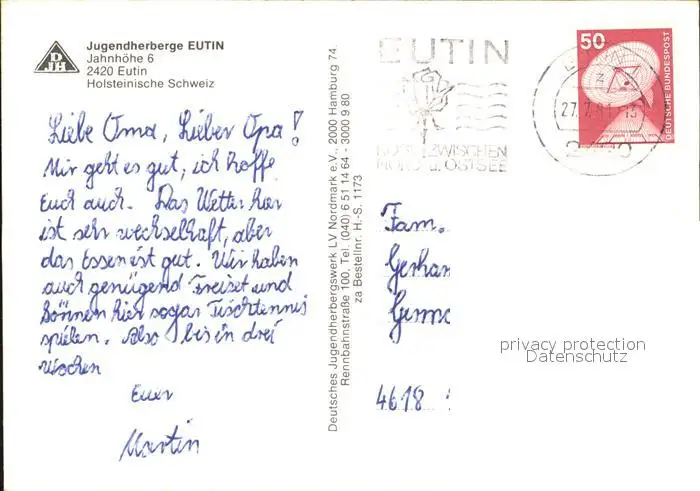 Jugendherberge EUTIN
Jahnhöhe 6
2420 Eutin
Holsteinische Schweiz
DJH
Liebe Oma, Lieber Opa!
Mir geht es gut, ich hoffe
Euch auch. Das Wetter hier
ist sehr wechselhaft, aber
das Essen ist gut. Wir haben
auch genügend Freizeit und
können hier sogar Tischtennis
spielen. Also bis in drei
wochen
Euer
Martin
Deutsches Jugendherbergswerk LV Nordmark e.V., 2000 Hamburg 74,
Rennbahnstraße 100, Tel. (040) 6 51 14 64, 3000 9 80
za Bestellnr. H.-S. 1173
EUTIN
ZWISCHEN
NORD- u. OSTSEE
27.7.81-13
50
DEUTSCHE BUNDESPOST
Fam.
Gerhar
4618
privacy protection
Datenschutz